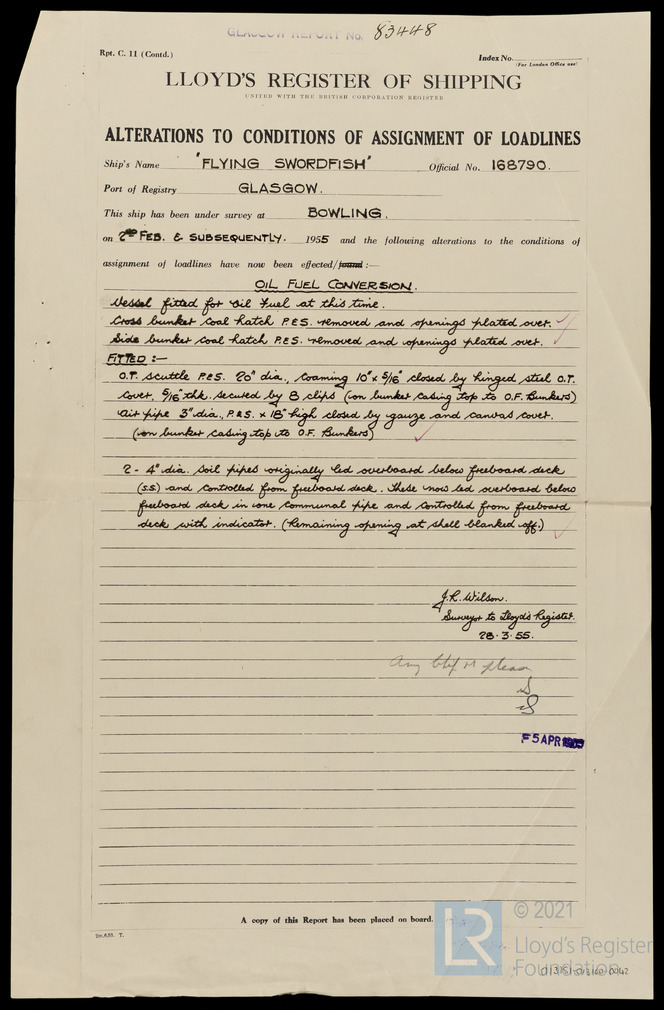 GLASGOW REPORT No. 83448
Rpt. C. 11 (Contd.)
Index No.
(For London Office use)
LLOYD'S REGISTER OF SHIPPING
UNITED WITH THE BRITISH CORPORATION REGISTER
ALTERATIONS TO CONDITIONS OF ASSIGNMENT OF LOADLINES
Ship's Name 'FLYING SWORDFISH' Official No. 168790.
Port of Registry GLASGOW.
This ship has been under survey at BOWLING.
on 2ND FEB. & SUBSEQUENTLY. 1955 and the following alterations to the conditions of
assignment of loadlines have now been effected/found :—
OIL FUEL CONVERSION.
Vessel fitted for Oil Fuel at this time.
Cross bunker coal hatch P.&S. removed and openings plated over.
Side bunker coal hatch P.&S. removed and openings plated over.
FITTED :—
O.T. scuttle P.&S. 20" dia., coaming 10" x 5/16" closed by hinged steel O.T.
cover, 5/16" thk. secured by 8 clips (on bunker casing top to O.F. Bunkers)
Air pipe 3" dia., P.&S. x 18" high closed by gauze and canvas cover.
(on bunker casing top to O.F. Bunkers)
2 - 4" dia. soil pipes originally led overboard below freeboard deck
(S.S) and controlled from freeboard deck. These now led overboard below
freeboard deck in one communal pipe and controlled from freeboard
deck with indicator. (Remaining opening at shell blanked off.)
J.R. Wilson.
Surveyor to Lloyd's Register.
28.3.55.
Any please
5 APR 1955
A copy of this Report has been placed on board.
2m.6.53. T.
LR
© 2021
Lloyd's Register
Foundation